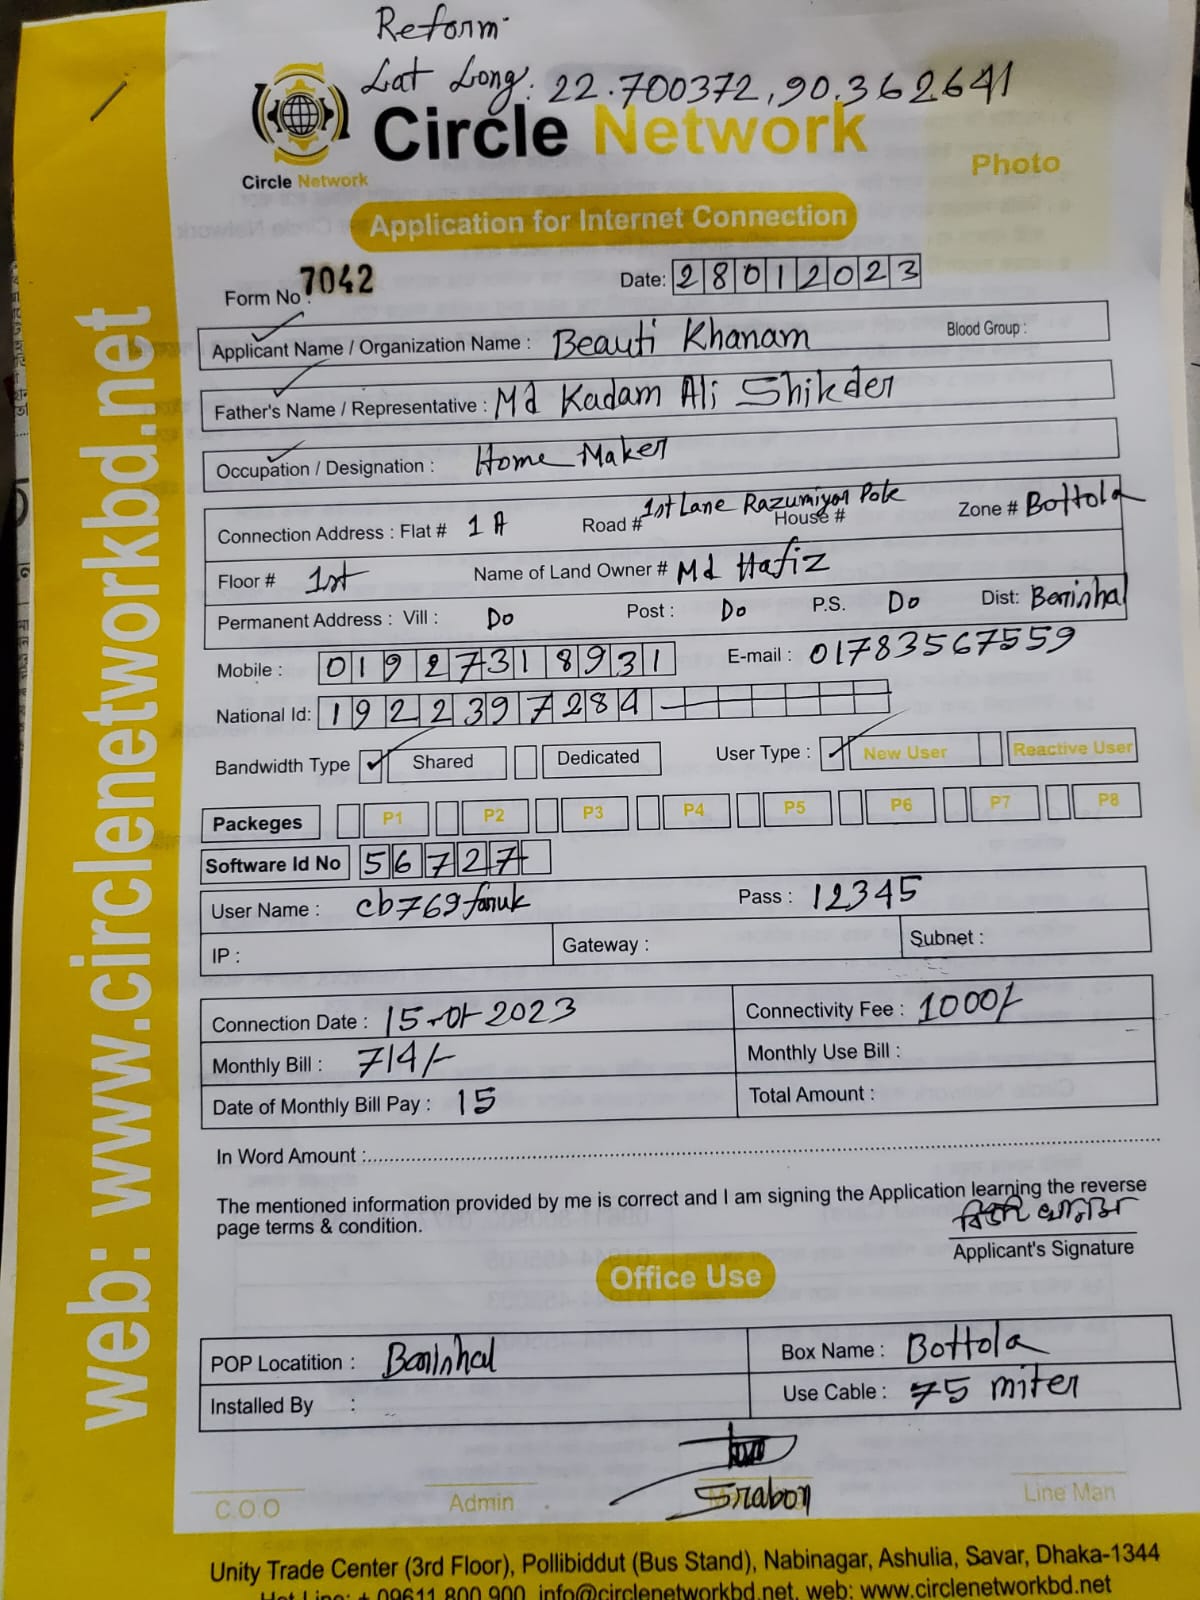 Reform
Lat Long: 22.700372, 90.362641
Circle Network
Circle Network
Photo
Application for Internet Connection
Form No : 7042
Date: 28012023
Applicant Name / Organization Name : Beauti Khanam Blood Group :
Father's Name / Representative : Md Kadam Ali Shikder
Occupation / Designation : Home Maker
Connection Address : Flat # 1 A Road # 1st Lane Razumiyar Pole House # Zone # Bottola
Floor # 1st Name of Land Owner # Md Hafiz
Permanent Address : Vill : Do Post : Do P.S. Do Dist: Barishal
Mobile : 01927318931 E-mail : 01783567559
National Id: 1922397284
Bandwidth Type ✓ Shared Dedicated User Type : ✓ New User Reactive User
Packeges P1 P2 P3 P4 P5 P6 P7 P8
Software Id No 56727
User Name : cb769faruk Pass : 12345
IP : Gateway : Subnet :
Connection Date : 15-01-2023 Connectivity Fee : 1000/-
Monthly Bill : 714/- Monthly Use Bill :
Date of Monthly Bill Pay : 15 Total Amount :
In Word Amount :
The mentioned information provided by me is correct and I am signing the Application learning the reverse
page terms & condition.
বিউটি খানম
Applicant's Signature
Office Use
POP Locatition : Barishal Box Name : Bottola
Installed By : Use Cable : 75 miter
Srabon
C.O.O Admin Line Man
Unity Trade Center (3rd Floor), Pollibiddut (Bus Stand), Nabinagar, Ashulia, Savar, Dhaka-1344
Hot Line: + 09611 800 900, info@circlenetworkbd.net, web: www.circlenetworkbd.net
web: www.circlenetworkbd.net